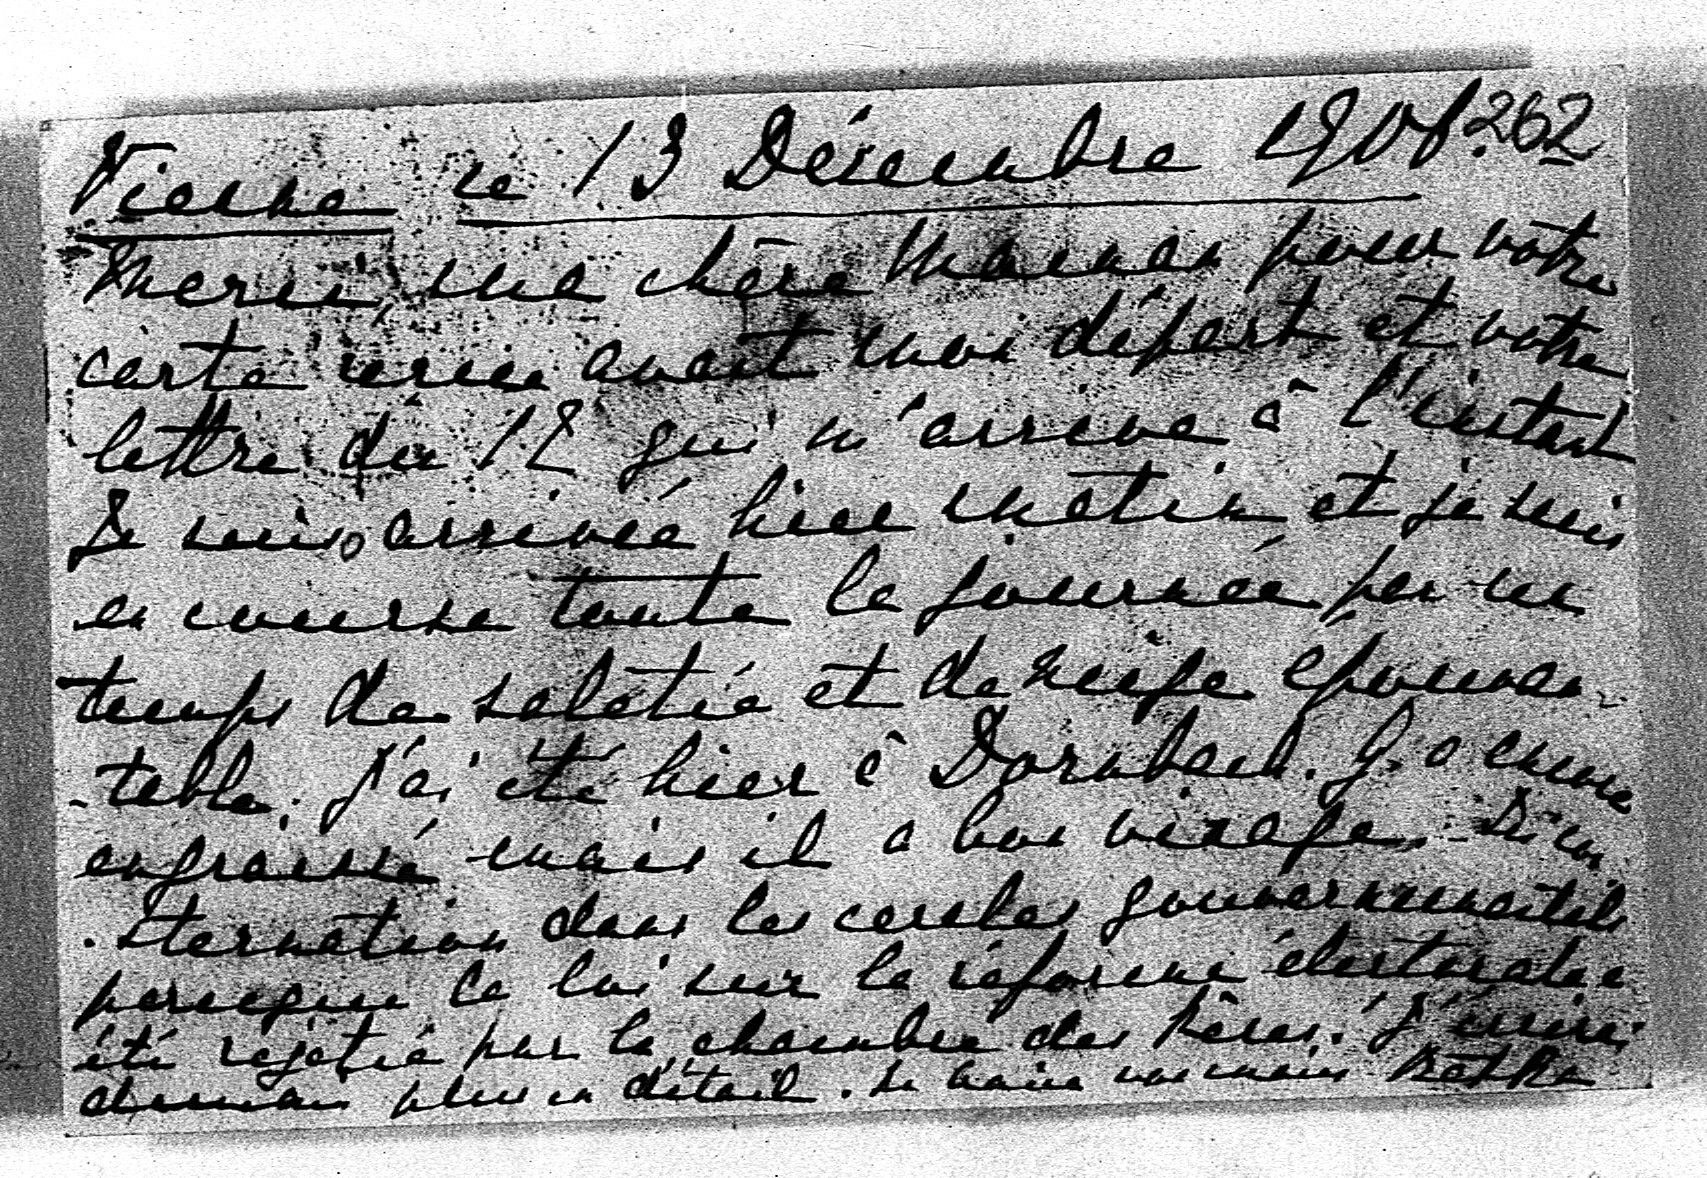 Vienne le 13 Décembre 1906. 262
Merci, ma chère Maman pour votre
carte reçue avant mon départ et votre
lettre du 12 qui m'arrive à l'instant
Je suis arrivée hier matin et je suis
en course toute la journée par un
temps de saleté et de neige épouvan-
-table. J'ai été hier à Dornbach. G. a encore
engraissé mais il a bon visage. con
-sternation dans les cercles gouvernementals
parceque la loi sur la réforme électorale a
été rejetée par la chambre des Pères. J'écrirai
demain plus en détail. Je baise vos mains